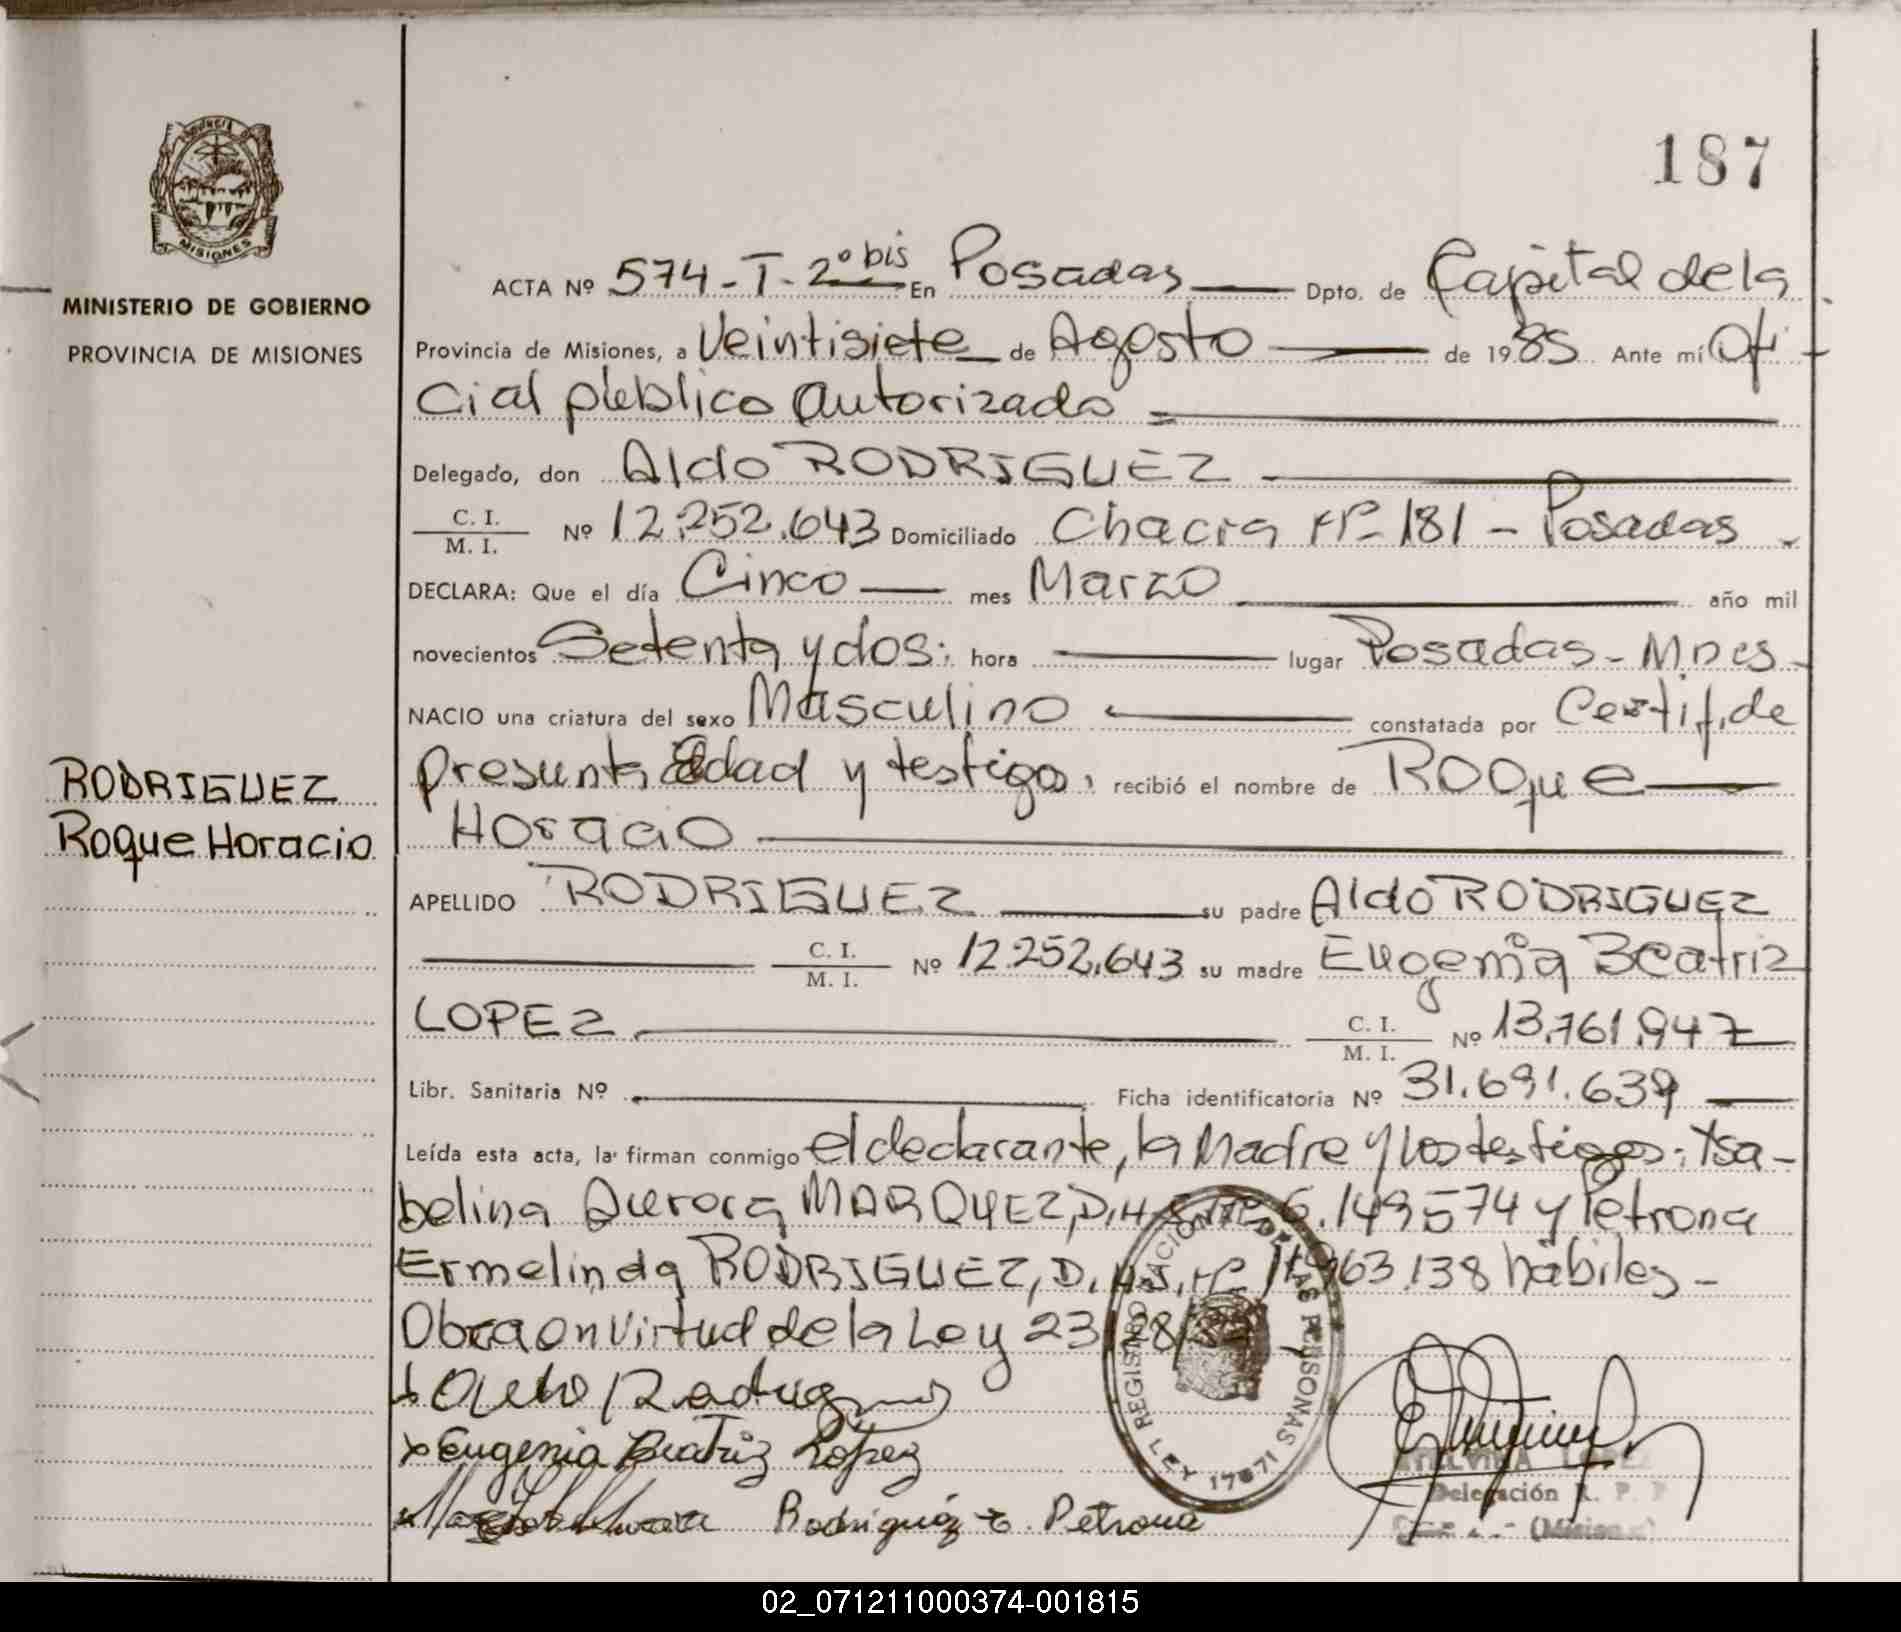 187
PROVINCIA DE
MISIONES
MINISTERIO DE GOBIERNO
PROVINCIA DE MISIONES
ACTA Nº 574-T-2º bis En Posadas Dpto. de Capital de la
Provincia de Misiones, a Veintisiete de Agosto de 1985 Ante mí Ofi
cial público autorizado
Delegado, don Aldo RODRIGUEZ
C. I.
M. I. Nº 12.252.643 Domiciliado Chacra Nº 181 - Posadas
DECLARA: Que el día Cinco mes Marzo año mil
novecientos Setenta y dos; hora lugar Posadas - Mnes
NACIO una criatura del sexo Masculino constatada por Certif. de
presunta Edad y testigos, recibió el nombre de Roque
Horacio
RODRIGUEZ
Roque Horacio
APELLIDO RODRIGUEZ su padre Aldo RODRIGUEZ
C. I.
M. I. Nº 12.252.643 su madre Eugenia Beatriz
LOPEZ C. I.
M. I. Nº 13.761.947
Libr. Sanitaria Nº Ficha identificatoria Nº 31.691.639
Leída esta acta, la firman conmigo el declarante, la Madre y los testigos: Ysa-
belina Aurora MARQUEZ, D.N.I. Nº 6.149574 y Petrona
Ermelinda RODRIGUEZ, D.N.I. Nº 963.138 hábiles -
Obra en virtud de la Ley 23
Aldo Rodriguez
Eugenia Beatriz Lopez
Rodriguez E. Petrona
REGISTRO NACIONAL DE LAS PERSONAS
LEY 17671
Delegación R. P.
(Misiones)
02_071211000374-001815